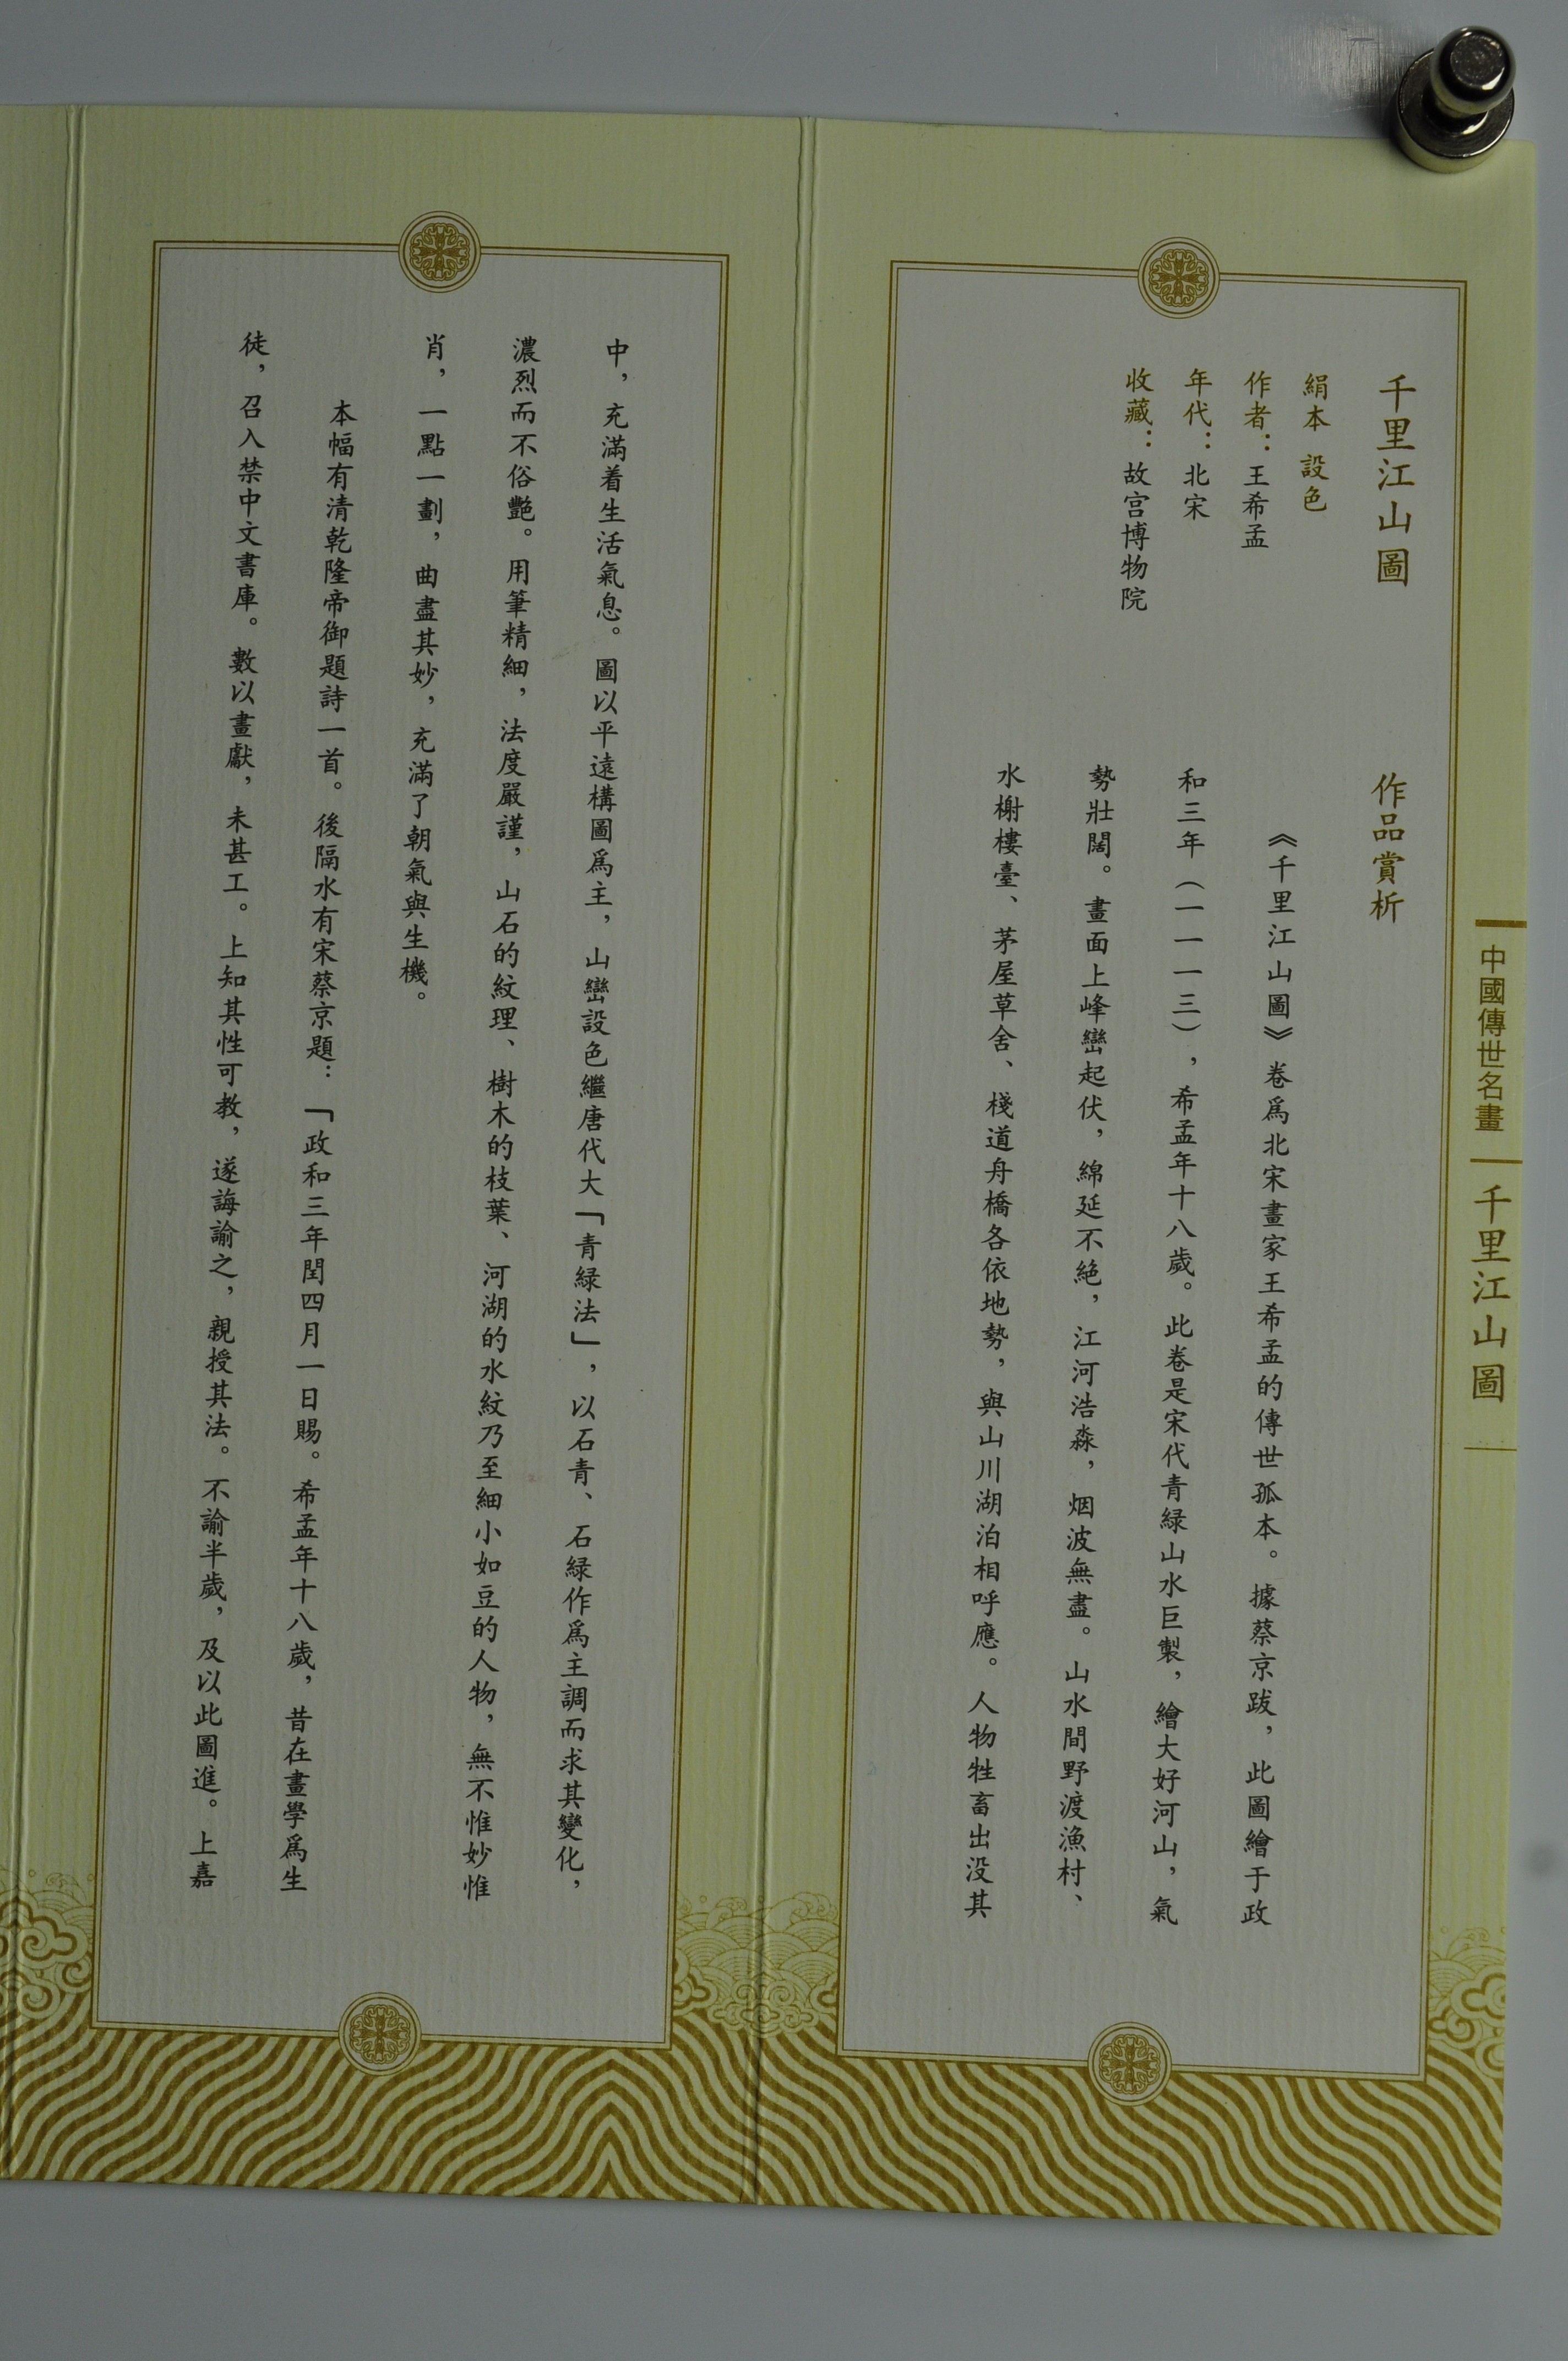 中國傳世名畫
千里江山圖
千里江山圖
絹本 設色
作者：王希孟
年代：北宋
收藏：故宫博物院
作品賞析
《千里江山圖》卷爲北宋畫家王希孟的傳世孤本。據蔡京跋，此圖繪于政
和三年（一一一三），希孟年十八歲。此卷是宋代青緑山水巨製，繪大好河山，氣
勢壯闊。畫面上峰巒起伏，綿延不絶，江河浩淼，烟波無盡。山水間野渡漁村、
水榭樓臺、茅屋草舍、棧道舟橋各依地勢，與山川湖泊相呼應。人物牲畜出没其
中，充滿着生活氣息。圖以平遠構圖爲主，山巒設色繼唐代大「青緑法」，以石青、石緑作爲主調而求其變化，
濃烈而不俗艷。用筆精細，法度嚴謹，山石的紋理、樹木的枝葉、河湖的水紋乃至細小如豆的人物，無不惟妙惟
肖，一點一劃，曲盡其妙，充滿了朝氣與生機。
本幅有清乾隆帝御題詩一首。後隔水有宋蔡京題：「政和三年閏四月一日賜。希孟年十八歲，昔在畫學爲生
徒，召入禁中文書庫。數以畫獻，未甚工。上知其性可教，遂誨諭之，親授其法。不諭半歲，及以此圖進。上嘉